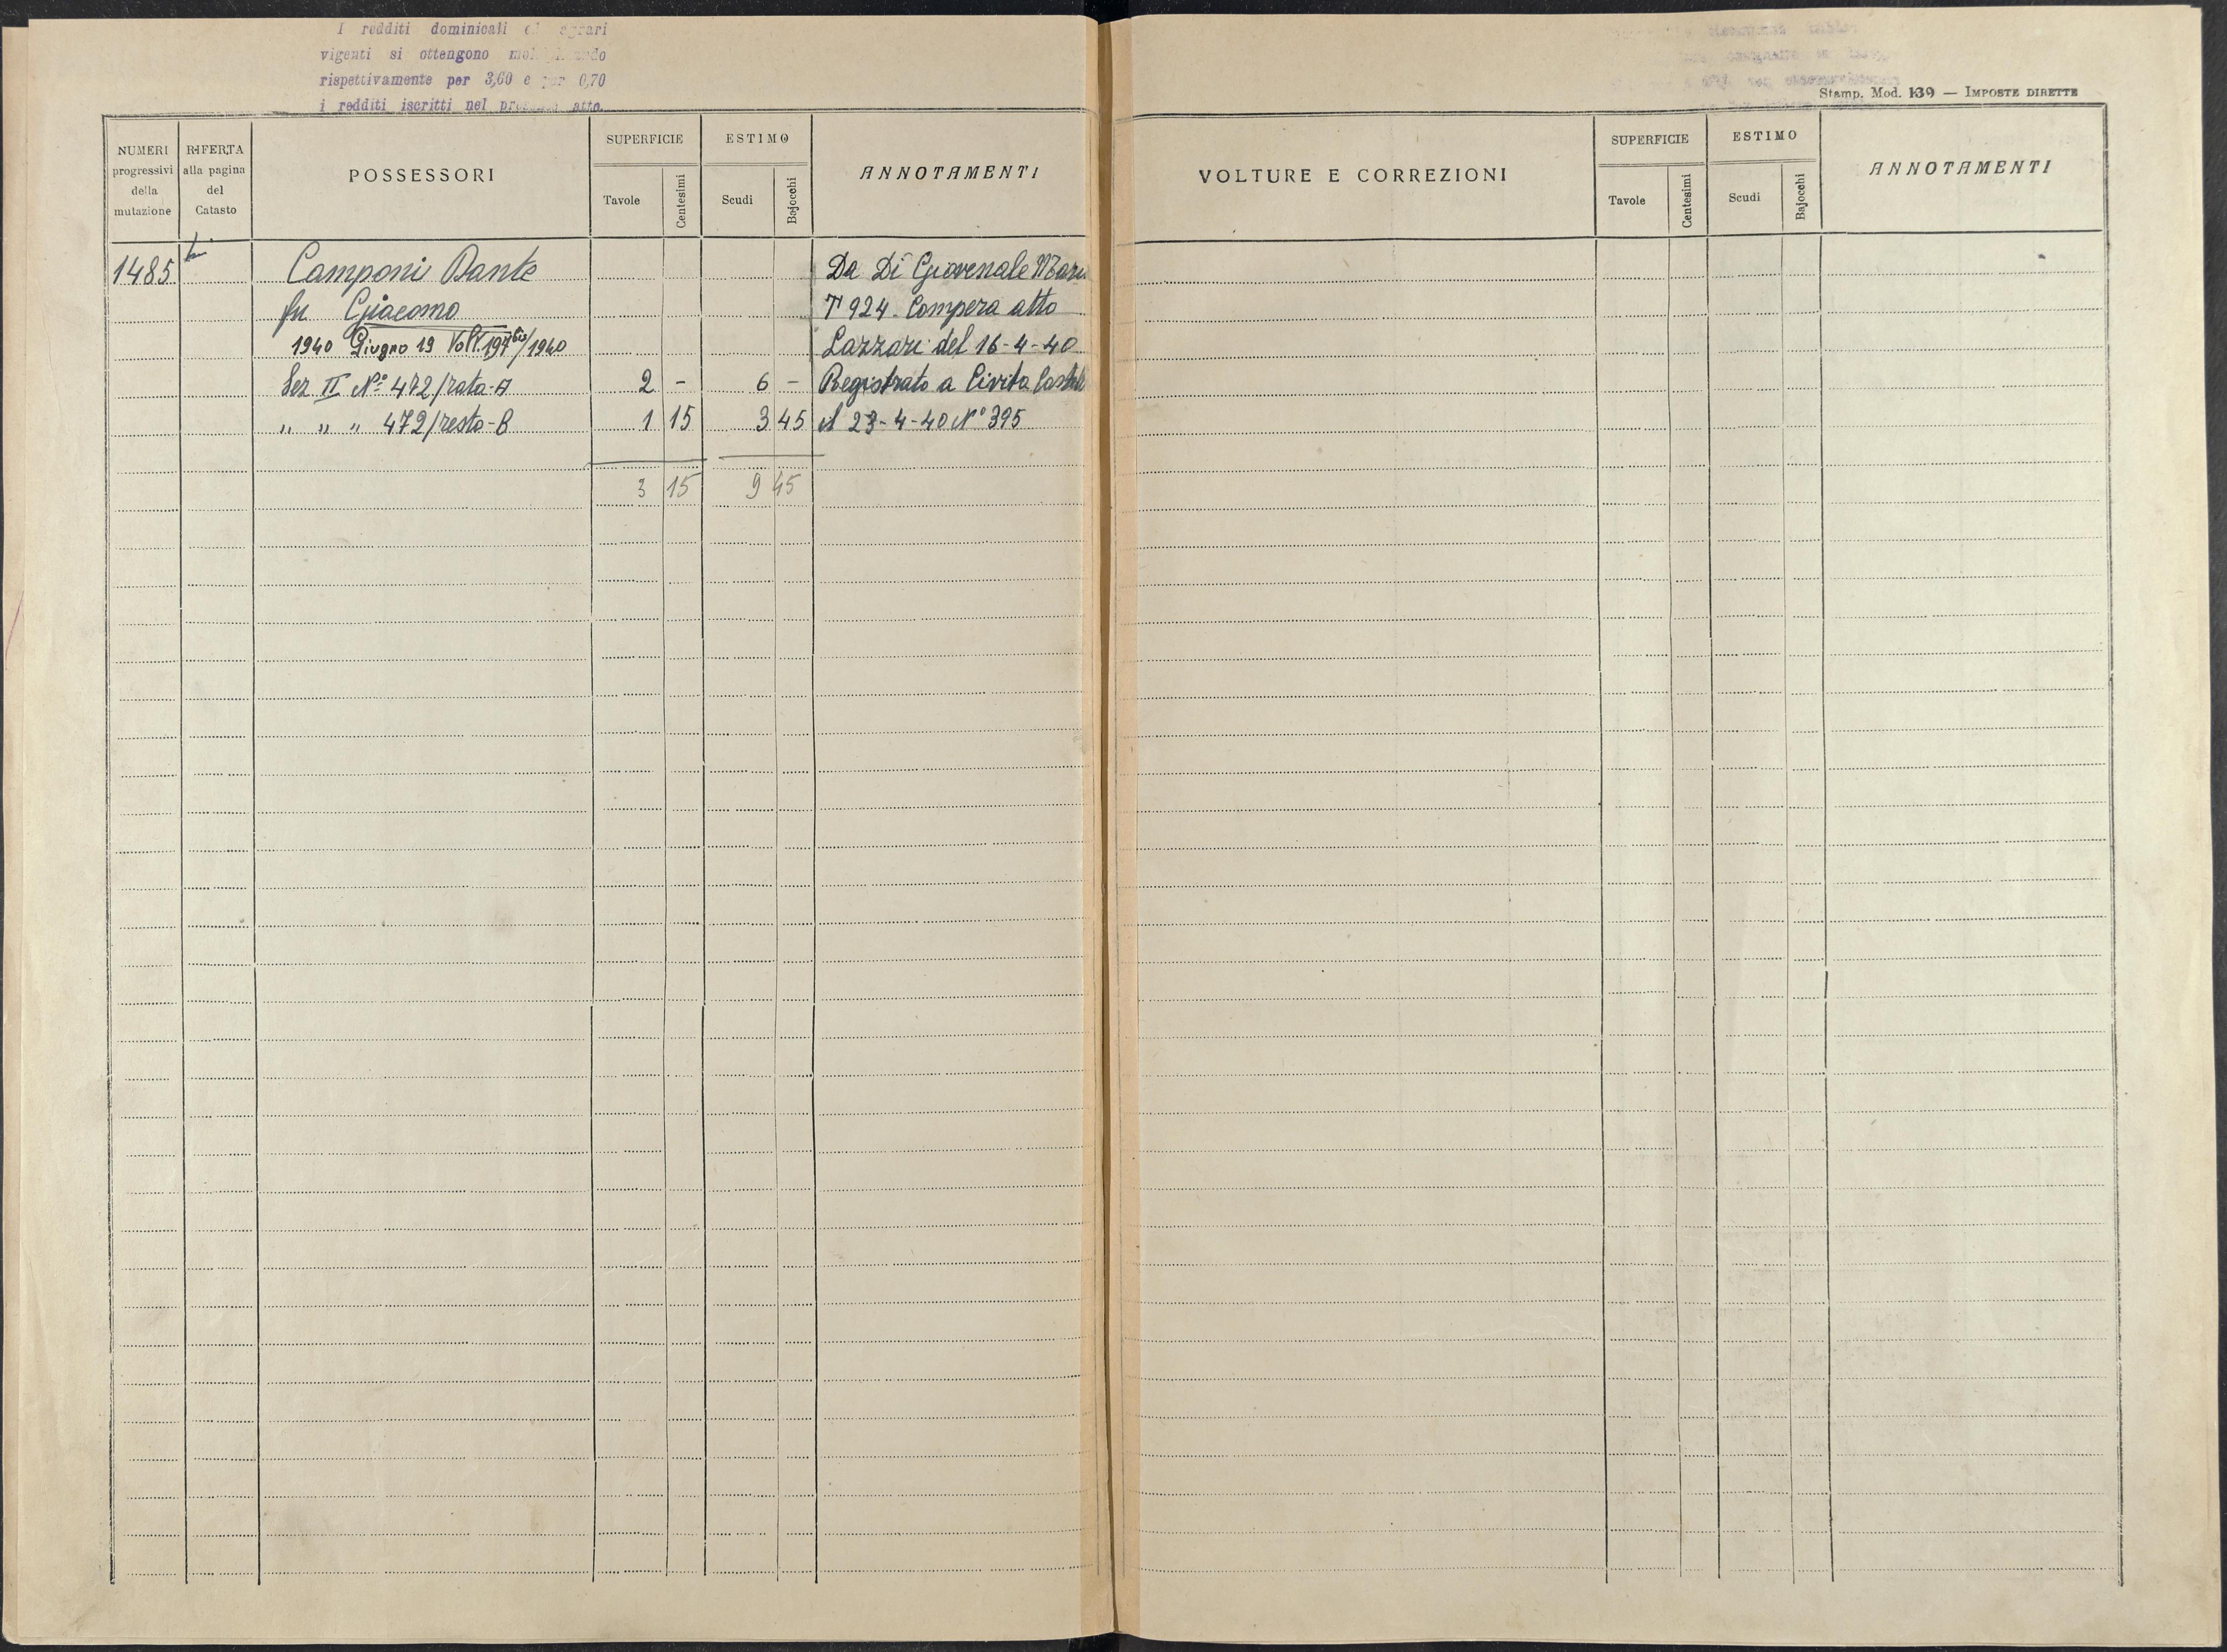 I redditi dominicali
vigenti si ottengono
rispettivamente per 3,60 e per 0,70
i redditi iscritti nel atto.
Stamp. Mod. 139 — IMPOSTE DIRETTE
NUMERI progressivi della mutazione
RIFERTA alla pagina del Catasto
POSSESSORI
SUPERFICIE
Tavole Centesimi
ESTIMO
Scudi Bajocchi
ANNOTAMENTI
VOLTURE E CORREZIONI
SUPERFICIE
Tavole Centesimi
ESTIMO
Scudi Bajocchi
ANNOTAMENTI
1485 Camponi Dante Da Di Giovenale
fu Giacomo T 924. Compera atto
1940 Giugno 19 Volt. 197 bis/1940 Lazzari del 16-4-40
Sez II Nº 472/rata-A 2 - 6 - Registrato a Civita
" " " 472/resto-B 1 15 3 45 il 23-4-40 Nº 395
3 15 9 45